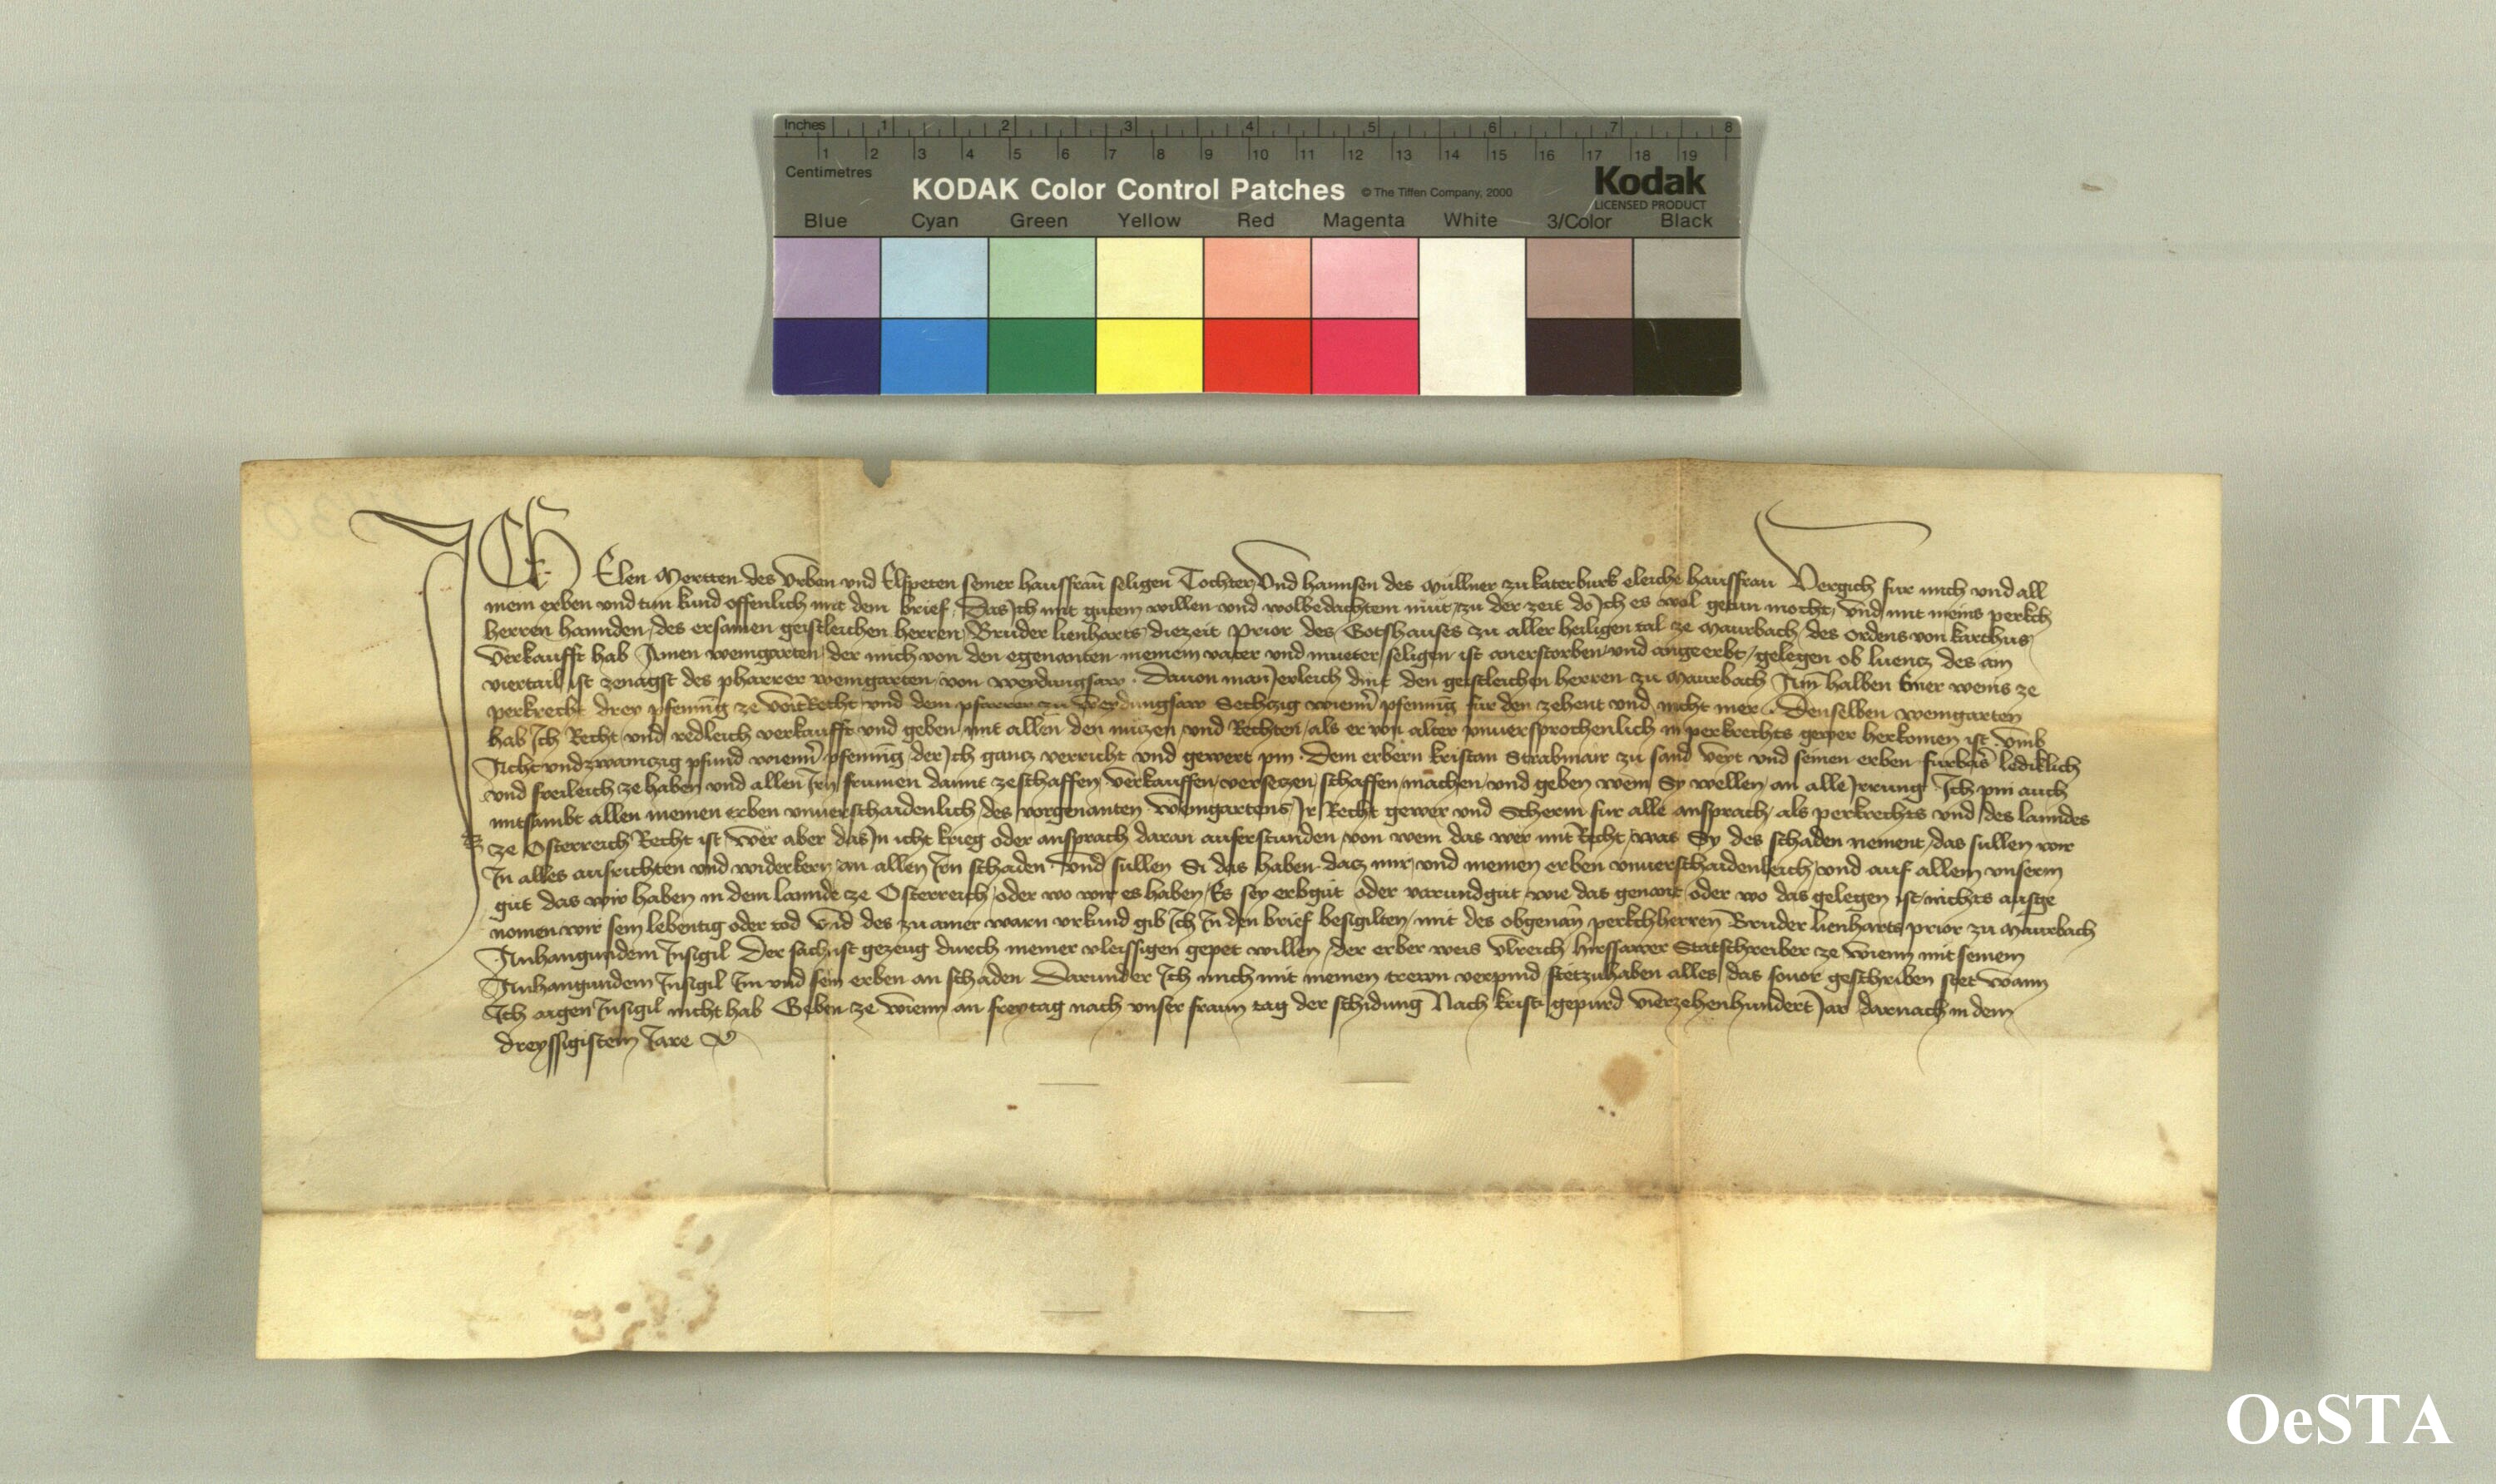 Inches 1 2 3 4 5 6 7 8
1 2 3 4 5 6 7 8 9 10 11 12 13 14 15 16 17 18 19
Centimetres
KODAK Color Control Patches © The Tiffen Company, 2000 Kodak
LICENSED PRODUCT
Blue Cyan Green Yellow Red Magenta White 3/Color Black
Ich Elen Mertten des Urben und Elspeten seiner hausfraũ seligen Tochter Und hannsen des Müllner zu katerburk eleiche hausfrau Vergich fur mich und all
mein erben und tun kund offenlich mit dem brief, Das Ich mit gutem willen und wolbedachtem mut, zu der zeit do Ich es wol getun mocht, und mit meins perkch
herren hannden, des ersamen geistleichen herren, Bruder lienharts, diezeit Prior des Gotshauses zu aller heiligen tal ze Maurbach, des ordens von karthus
Verkaufft hab Ainen weingarten, der mich von den egenanten meinem vater und mueter seligen ist anerstorben und angeerbt, gelegen ob luencz des ain
viertail ist zenagst des pharrer weingarten, von Davon man Jerleich dint den geistleichen herren zu Maurbach Ain halben Emer weins ze
perkrecht drey pfening ze voitRecht und dem pfarrer zu Sechczig wienñ pfening fur den zehent und nicht mer. Denselben weingarten
hab Ich Recht und redleich verkaufft und geben, mit allen den nüczen und Rechten, als er von alter unversprochenlich in perkrechts gewer herkomen ist. Umb
Acht undzwainczig pfund wienñ pfening, der Ich gancz verricht und gewert pin. Dem erbern kristan Strasmair zu sand Veyt und seinen erben furbas ledikleich
und freileich ze haben und allen Irn frumen damit zeschaffen, Verkauffen, versetzen, schaffen, machen, und geben wem Sy wellen, an alle Irrung Ich pin auch
mitsambt allen meinen erben unverschaidenlich, des vorgenanten weingartens, Ir Recht gewer und Scherm fur alle ansprach, als perkrechts und des lanndes
ze Osterreich Recht ist, wer aber das In icht krieg oder ansprach daran auferstunden, von wem das wer mit Recht, was Sy des schaden nement, das sullen wir
In alles ausrichten und widerkern an allen Irn schaden Und sullen Si das haben dacz mir, und meinen erben unverschaidenleich, und auf allem unserm
gut das wir haben in dem lannde ze Osterreich, oder wo wir es haben, Es sey erbgut oder varundgut, wie das genant, oder wo das gelegen ist nichts ausge
nomen wir sein lebentig oder tod Und des zu ainer warn urkund gib Ich In den brief besigilten, mit des obgenañ perkchherren Bruder lienharts prior zu Maurbach
Anhangundem Insigil Der sach ist gezeug durch meiner vleissigen gepet willen, der erber weis Ulreich hirssawer Statschreiber ze wienn mit seinem
Anhangundem Insigil Im und sein erben an schaden Darunder Ich mich mit meinen trewn verpind, stetzuhaben alles, das sovor geschriben stet wann
Ich aigen Insigil nicht hab Geben ze wienn an freytag nach unser fraun tag der schidung Nach kristi gepurd vierzehenhundert Jar darnach in dem
dreyssigistem Jare
OeSTA